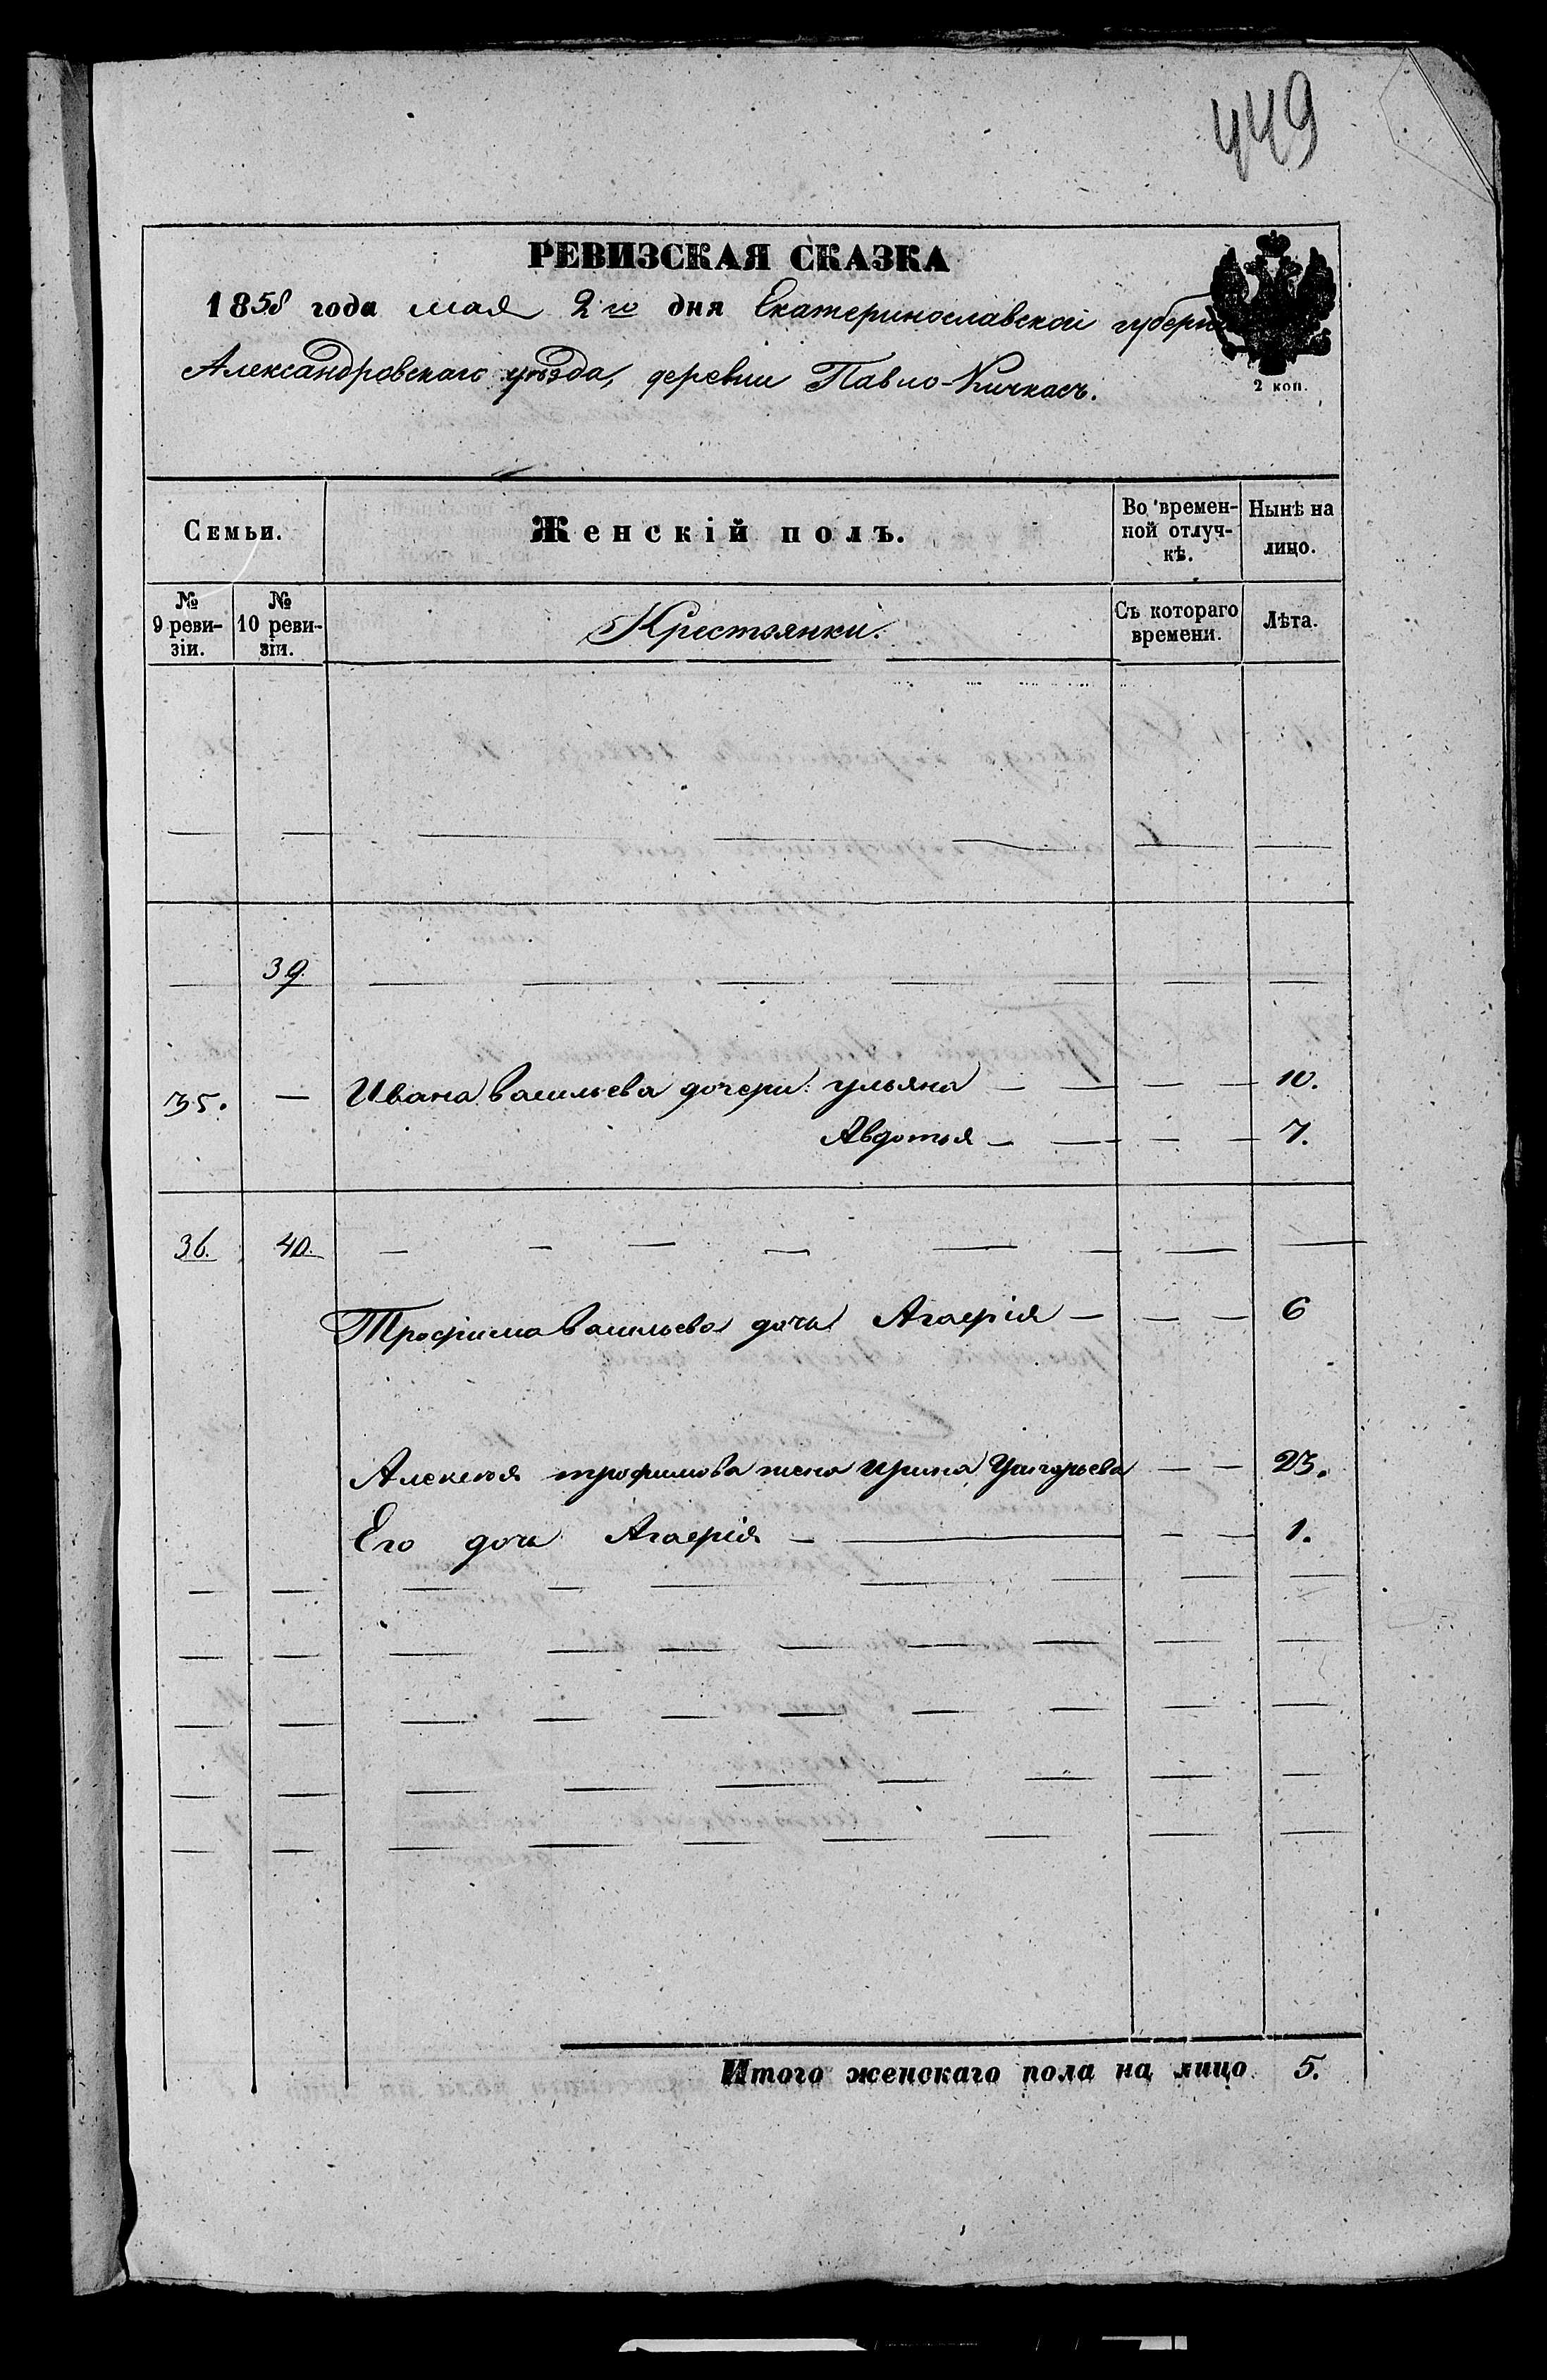 449
РЕВИЗСКАЯ СКАЗКА
1858 года мая 2го дня Екатеринославской губерн
Александровскаго уѣзда, деревни Павло-Кичкасъ.
2 коп.
Семьи. Женскій полъ. Во времен-ной отлуч-кѣ. Нынѣ на лицо.
№ 9 реви-зіи. № 10 реви-зіи. Крестьянки. Съ котораго времени. Лѣта.
— — — — — — —
— 39. — — — — — — —
35. — Ивана Васильева дочери: Ульяна — — — — 10.
Авдотья — — — — 7.
36. 40. — — — — — — — —
Трофима Васильева дочь Агафія — — — 6
Алексея трофимова жена Ирина Григорьева — — 23.
Его дочь Агафія — — — — 1.
— — — — — — — — —
— — — — — — — — —
— — — — — — — — — —
— — — — — — — — —
— — — — — — — — —
Итого женскаго пола на лицо 5.